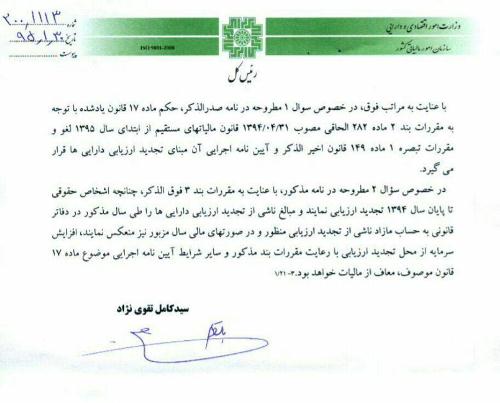 وزارت امور اقتصادی و دارایی
سازمان امور مالیاتی کشور
شماره ۲۰۰،۱۱۱۳
تاریخ ۹۵،۱،۳۰
پیوست
ISO-9001-2008
رئیس کل
با عنایت به مراتب فوق، در خصوص سوال ۱ مطروحه در نامه صدرالذکر، حکم ماده ۱۷ قانون یادشده با توجه
به مقررات بند ۲ ماده ۲۸۲ الحاقی مصوب ۱۳۹۴/۰۴/۳۱ قانون مالیاتهای مستقیم از ابتدای سال ۱۳۹۵ لغو و
مقررات تبصره ۱ ماده ۱۴۹ قانون اخیر الذکر و آیین نامه اجرایی آن مبنای تجدید ارزیابی دارایی ها قرار
می گیرد.
در خصوص سؤال ۲ مطروحه در نامه مذکور، با عنایت به مقررات بند ۳ فوق الذکر، چنانچه اشخاص حقوقی
تا پایان سال ۱۳۹۴ تجدید ارزیابی نمایند و مبالغ ناشی از تجدید ارزیابی دارایی ها را طی سال مذکور در دفاتر
قانونی به حساب مازاد ناشی از تجدید ارزیابی منظور و در صورتهای مالی سال مزبور نیز منعکس نمایند، افزایش
سرمایه از محل تجدید ارزیابی با رعایت مقررات بند مذکور و سایر شرایط آیین نامه اجرایی موضوع ماده ۱۷
قانون موصوف، معاف از مالیات خواهد بود.۳-۱/۲۱
سیدکامل تقوی نژاد